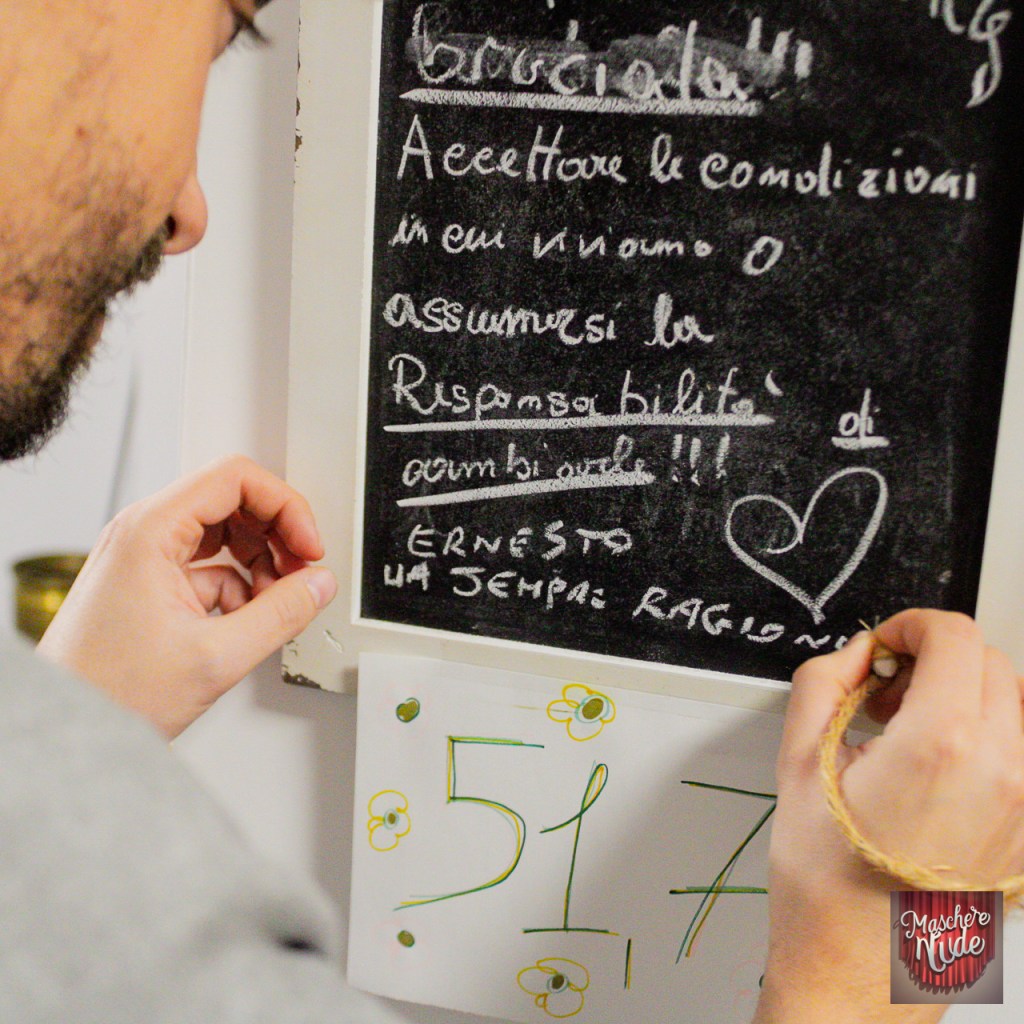 Accettare le condizioni
in cui viviamo o
assumersi la
Responsabilità di
cambiarle!!!
ERNESTO
HA SEMPRE RAGIONE
51,7
Maschere
Nude